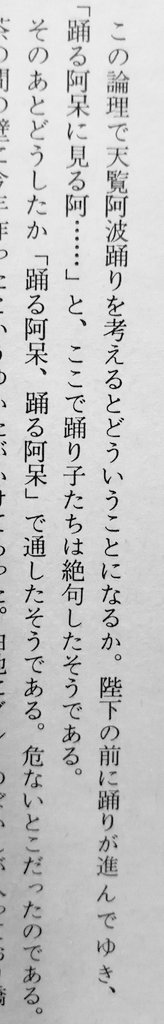 この論理で天覧阿波踊りを考えるとどういうことになるか。陛下の前に踊りが進んでゆき、
「踊る阿呆に見る阿……」と、ここで踊り子たちは絶句したそうである。
そのあとどうしたか「踊る阿呆、踊る阿呆」で通したそうである。危ないとこだったのである。